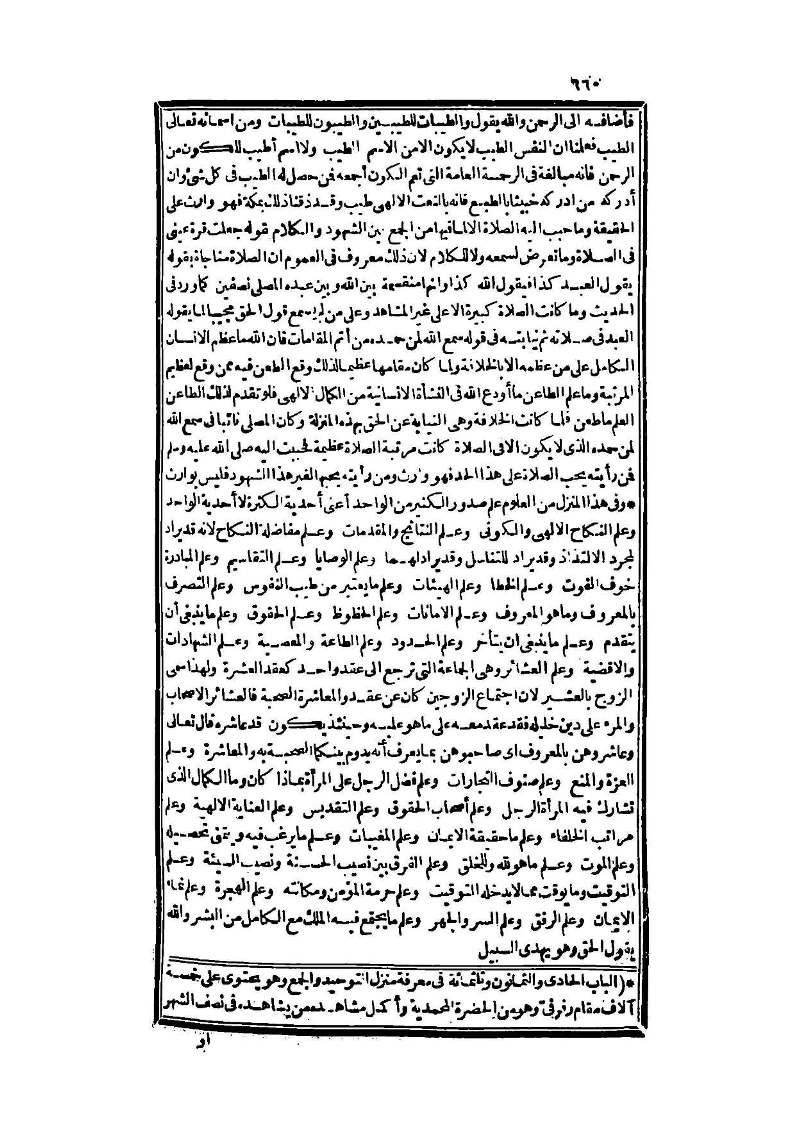 ٦٦٠
فأضافه الى الرحمن والله يقول والطيبات للطيبين والطيبون للطيبات ومن اسمائه تعالى
الطيب فعلمنا ان النفس الطيب لا يكون الا من الاسم الطيب ولا اسم أطيب للكون من
الرحمن فانه مبالغة فى الرحمة العامة التى تعم الكون أجمعه فمن حصل له الطيب فى كل شئ وان
أدركه من ادركه خبيثا بالطبع فانه بالنعت الالهى طيب وقد ذقنا ذلك بمكة فهو وارث على
الحقيقة وما حبب اليه الصلاة الا لما فيها من الجمع بين الشهود والكلام قوله جعلت قرة عينى
فى الصلاة وما تعرض لسمعه ولا للكلام لان ذلك معروف فى العموم ان الصلاة مناجاة بقوله
يقول العبد كذا فيقول الله كذا وانها منقسمة بين الله وبين عبده المصلى نصفين كما ورد فى
الحديث وما كانت الصلاة كبيرة الا على غير المشاهد وعلى من لم يسمع قول الحق مجيبا لما يقوله
العبد فى صلاته ثم نيابته فى قوله سمع الله لمن حمده من أتم المقامات فان الله ما عظم الانسان
الكامل على من عظمه الا بالخلافة ولما كان مقامها عظيما لذلك وقع الطعن فيه ممن وقع لعظيم
المرتبة وما علم الطاعن ما أودع الله فى النشأة الانسانية من الكمال الالهى فلو تقدم لذلك الطاعن
العلم ما طعن فلما كانت الخلافة وهى النيابة عن الحق بهذه المنزلة وكان المصلى نائبا فى سمع الله
لمن حمده الذى لا يكون الا فى الصلاة كانت مرتبة الصلاة عظيمة فحببت اليه صلى الله عليه وسلم
فمن رأيته يحب الصلاة على هذا الحد فهو وارث ومن رأيته يحبها لغير هذا الشهود فليس بوارث
* وفى هذا المنزل من العلوم علم صدور الكثير من الواحد أعنى أحدية الكثرة لا أحدية الواحد
وعلم النكاح الالهى والكونى وعلم النتائج والمقدمات وعلم مفاضلة النكاح لانه قد يراد
لمجرد الالتذاذ وقد يراد للتناسل وقد يراد لهما وعلم الوصايا وعلم التقاسيم وعلم المبادرة
خوف الفوت وعلم الخطا وعلم الهبات وعلم ما يعتبر من طيب النفوس وعلم التصرف
بالمعروف وما هو المعروف وعلم الامانات وعلم الحظوظ وعلم الحقوق وعلم ما ينبغى أن
يتقدم وعلم ما ينبغى ان يتأخر وعلم الحدود وعلم الطاعة والمعصية وعلم الشهادات
والاقضية وعلم العشائر وهى الجماعة التى ترجع الى عقد واحد كعقد العشرة ولهذا سمى
الزوج بالعشير لان اجتماع الزوجين كان عن عقد والمعاشرة الصحبة فالعشائر الاصحاب
والمرء على دين خليله فقد عقد معه على ما هو عليه وحينئذ يكون قد عاشره قال تعالى
وعاشروهن بالمعروف اى صاحبوهن بما يعرف أنه يدوم بينكما الصحبة به والمعاشرة وعلم
العزة والمنع وعلم صنوف التجارات وعلم فضل الرجل على المرأة بماذا كان وما الكمال الذى
تشارك فيه المرأة الرجل وعلم أصحاب الحقوق وعلم التقديس وعلم العناية الالهية وعلم
مراتب الخلفاء وعلم ما حقيقة الايمان وعلم المغيبات وعلم ما يرغب فيه ويتمنى تحصيله
وعلم الموت وعلم ما هو لله وللخلق وعلم الفرق بين نصيب الحسنة ونصيب السيئة وعلم
التوقيت وما يوقت مما لا يدخله التوقيت وعلم حرمة المؤمن ومكانته وعلم الهجرة وعلم نماء
الايمان وعلم الرفق وعلم السر والجهر وعلم ما يجتمع فيه الملك مع الكامل من البشر والله
يقول الحق وهو يهدى السبيل
* (الباب الحادى والثمانون وثلثمائة فى معرفة منزل التوحيد والجمع وهو يحتوى على خمسة
آلاف مقام رفرفى وهو من الحضرة المحمدية وأكمل مشاهده من يشاهده فى نصف الشهر
او